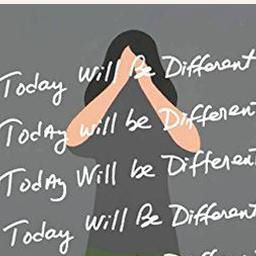 Today Will Be Different
Today will be Different
Today Will be Different
Today Will Be Different